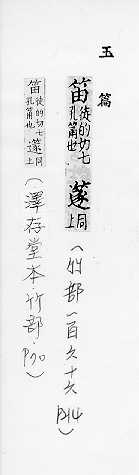 玉篇
笛徒的切七孔筩也 䔍同上
(竹部一百六十六 P14)
笛徒的切七孔筩也 䔍同上
(澤存堂本·竹部·P70)